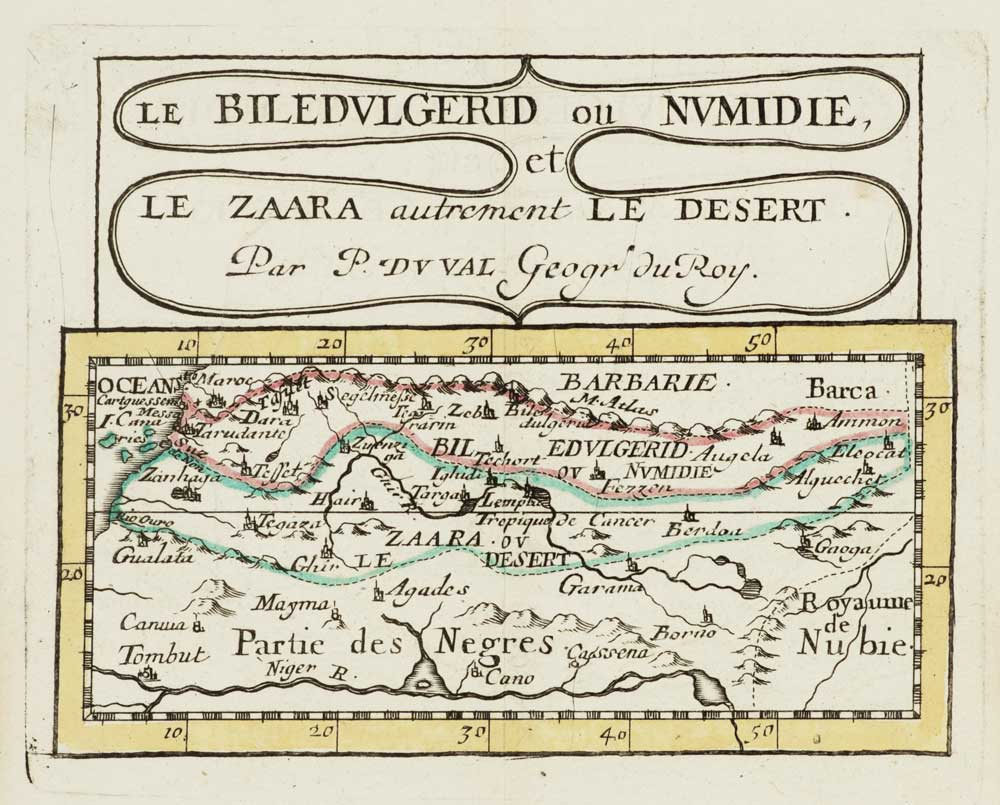 LE BILEDVLGERID ou NVMIDIE,
et
LE ZAARA autrement LE DESERT.
Par P. DV VAL Geogr.r du Roy.
10 20 30 40 50
OCEANS
Maroc
Tafilet
Segelmesse
BARBARIE.
Barca
30
30
Messa
Dara
Zeb
Biledulgerid
M. Atlas
I. Canaries
Tarudante
Ammon
BILEDVLGERID
OV NVMIDIE
Techort
Augela
Eleocat
Tesset
Zuenziga
Ighidi
Alguechet
Zanhaga
Hair
Ghir
Targa
Lempta
Fezzen
Rio Ouro
Tegaza
Tropique de Cancer
Berdoa
ZAARA. OV
Gaoga
Gualata
Ghir
LE DESERT
20
20
Agades
Garama
Mayma
Royaume
de
Nubie.
Canuia
Partie des Negres
Borno
Tombut
Niger R.
Cano
Cassena
10 20 30 40 50